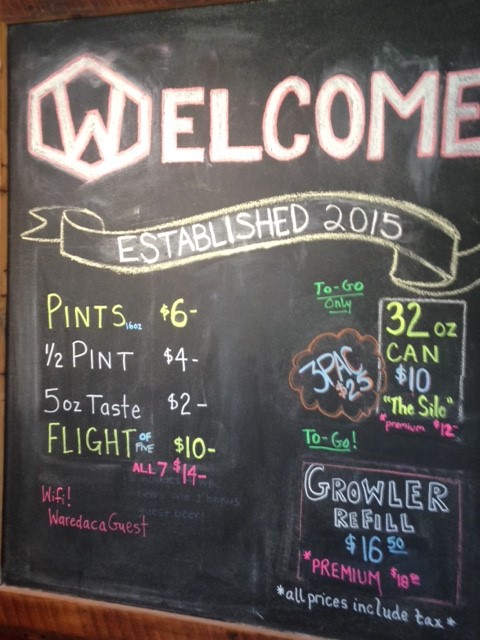 WELCOME
ESTABLISHED 2015
PINTS 16oz $6-
1/2 PINT $4-
5oz Taste $2-
FLIGHT OF FIVE $10-
ALL 7 $14-
Wifi!
WaredacaGuest
To-Go
Only
3PAC
$25
32 oz
CAN
$10
"The Silo"
*premium $12
To-Go!
GROWLER
REFILL
$16 50
*PREMIUM $18
*all prices include tax*